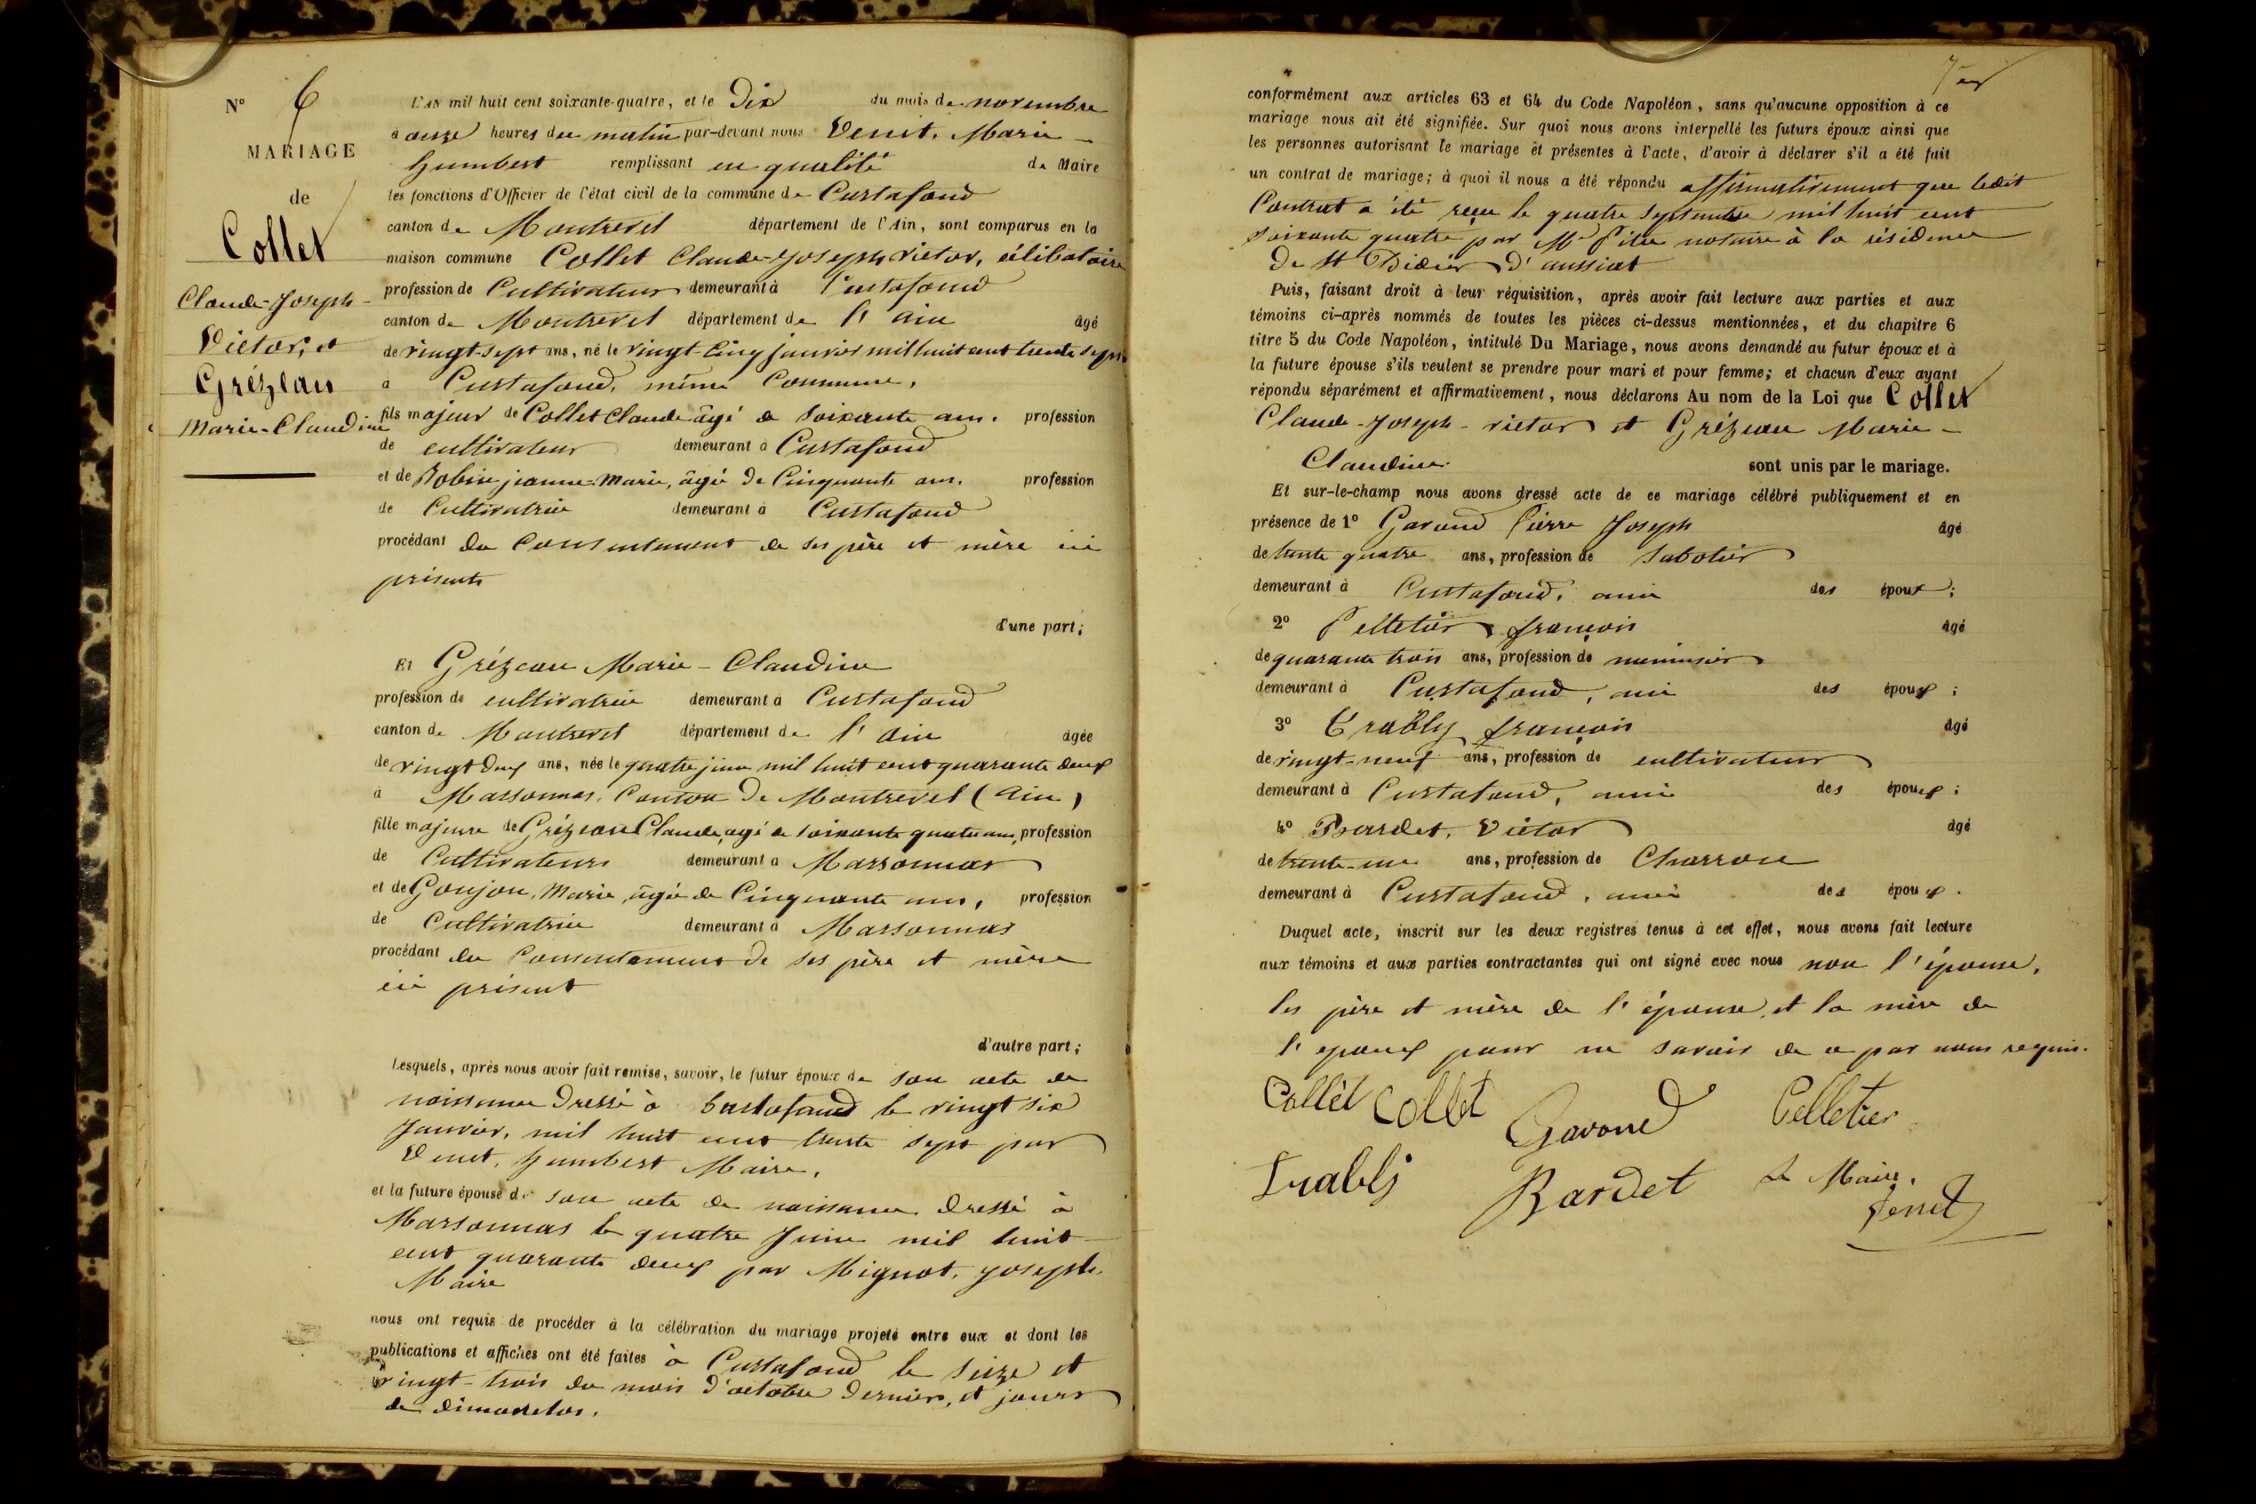 N° 6
MARIAGE
de
Collet
Claude-Joseph-
Victor, et
Grézeau
Marie-Claudine
L'AN mil huit cent soixante-quatre, et le Dix du mois de novembre
à onze heures du matin par-devant nous Venet, Marie-
humbert remplissant en qualité de Maire
les fonctions d'Officier de l'état civil de la commune de Curtafond
canton de Montrevel département de l'Ain, sont comparus en la
maison commune Collet Claude-Joseph victor, célibataire
profession de Cultivateur demeurant à Curtafond
canton de Montrevel département de l'ain âgé
de vingt-sept ans, né le vingt-cinq janvier mil huit cent trente sept
à Curtafond, même Commune,
fils majeur de Collet Claude âgé de soixante ans. profession
de cultivateur demeurant à Curtafond
et de Robin jeanne-Marie, âgée de Cinquante ans. profession
de Cultivatrice demeurant à Curtafond
procédant du Consentement de ses père et mère ici
présents
d'une part;
Et Grézeau Marie-Claudine
profession de cultivatrice demeurant à Curtafond
canton de Montrevel département de l'ain âgée
de vingt deux ans, née le quatre juin mil huit cent quarante deux
à Marsonnas, Canton de Montrevel (ain)
fille majeure de Grézeau Claude, âgé de soixante quatre ans, profession
de Cultivateur demeurant à Marsonnas
et de Goujon, Marie, âgée de Cinquante ans, profession
de Cultivatrice demeurant à Marsonnas
procédant du Consentement de ses père et mère
ici présent
d'autre part;
Lesquels, après nous avoir fait remise, savoir, le futur époux de son acte de
naissance Dressé à Curtafond le vingt six
Janvier, mil huit cent trente sept par
Venet, humbert Maire,
et la future épouse de son acte de naissance dressé à
Marsonnas le quatre Juin mil huit
cent quarante deux par Mignot, joseph
Maire
nous ont requis de procéder à la célébration du mariage projeté entre eux et dont les
publications et affiches ont été faites à Curtafond le seize et
vingt-trois du mois d'octobre dernier, et jours
de dimanches.
conformément aux articles 63 et 64 du Code Napoléon, sans qu'aucune opposition à ce
mariage nous ait été signifiée. Sur quoi nous avons interpellé les futurs époux ainsi que
les personnes autorisant le mariage et présentes à l'acte, d'avoir à déclarer s'il a été fait
un contrat de mariage; à quoi il nous a été répondu affirmativement que ledit
Contrat a été reçu le quatre septembre mil huit cent
soixante quatre par Me notaire à la résidence
De St Didier d'aussiat
Puis, faisant droit à leur réquisition, après avoir fait lecture aux parties et aux
témoins ci-après nommés de toutes les pièces ci-dessus mentionnées, et du chapitre 6
titre 5 du Code Napoléon, intitulé Du Mariage, nous avons demandé au futur époux et à
la future épouse s'ils veulent se prendre pour mari et pour femme; et chacun d'eux ayant
répondu séparément et affirmativement, nous déclarons Au nom de la Loi que Collet
Claude-Joseph-victor et Grézeau Marie-
Claudine sont unis par le mariage.
Et sur-le-champ nous avons dressé acte de ce mariage célébré publiquement et en
présence de 1° Gavand Pierre Joseph âgé
de trente quatre ans, profession de sabotier
demeurant à Curtafond, ami des époux;
2° Pelletier françois âgé
de quarante trois ans, profession de menuisier
demeurant à Curtafond, ami des époux;
3° Trably françois âgé
de vingt-neuf ans, profession de cultivateur
demeurant à Curtafond, ami des époux;
4° Bardet, Victor âgé
de trente-un ans, profession de Charron
demeurant à Curtafond, ami des époux.
Duquel acte, inscrit sur les deux registres tenus à cet effet, nous avons fait lecture
aux témoins et aux parties contractantes qui ont signé avec nous non l'épouse,
les père et mère de l'épouse, et la mère de
l'époux pour ne savoir de ce par nous requis.
Collet Collet Gavand Pelletier
Trably Bardet Le Maire,
Venet